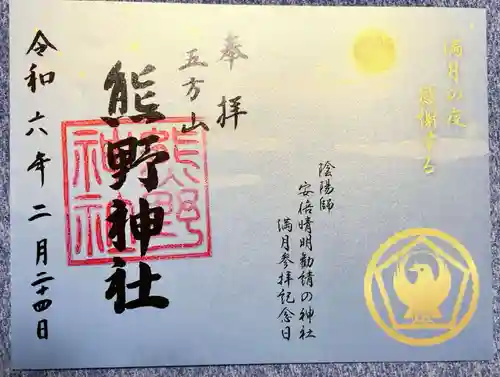 満月の夜
感謝する
奉拝
五方山
熊野神社
熊野
神社
令和六年二月二十四日
陰陽師
安倍晴明勧請の神社
満月参拝記念日